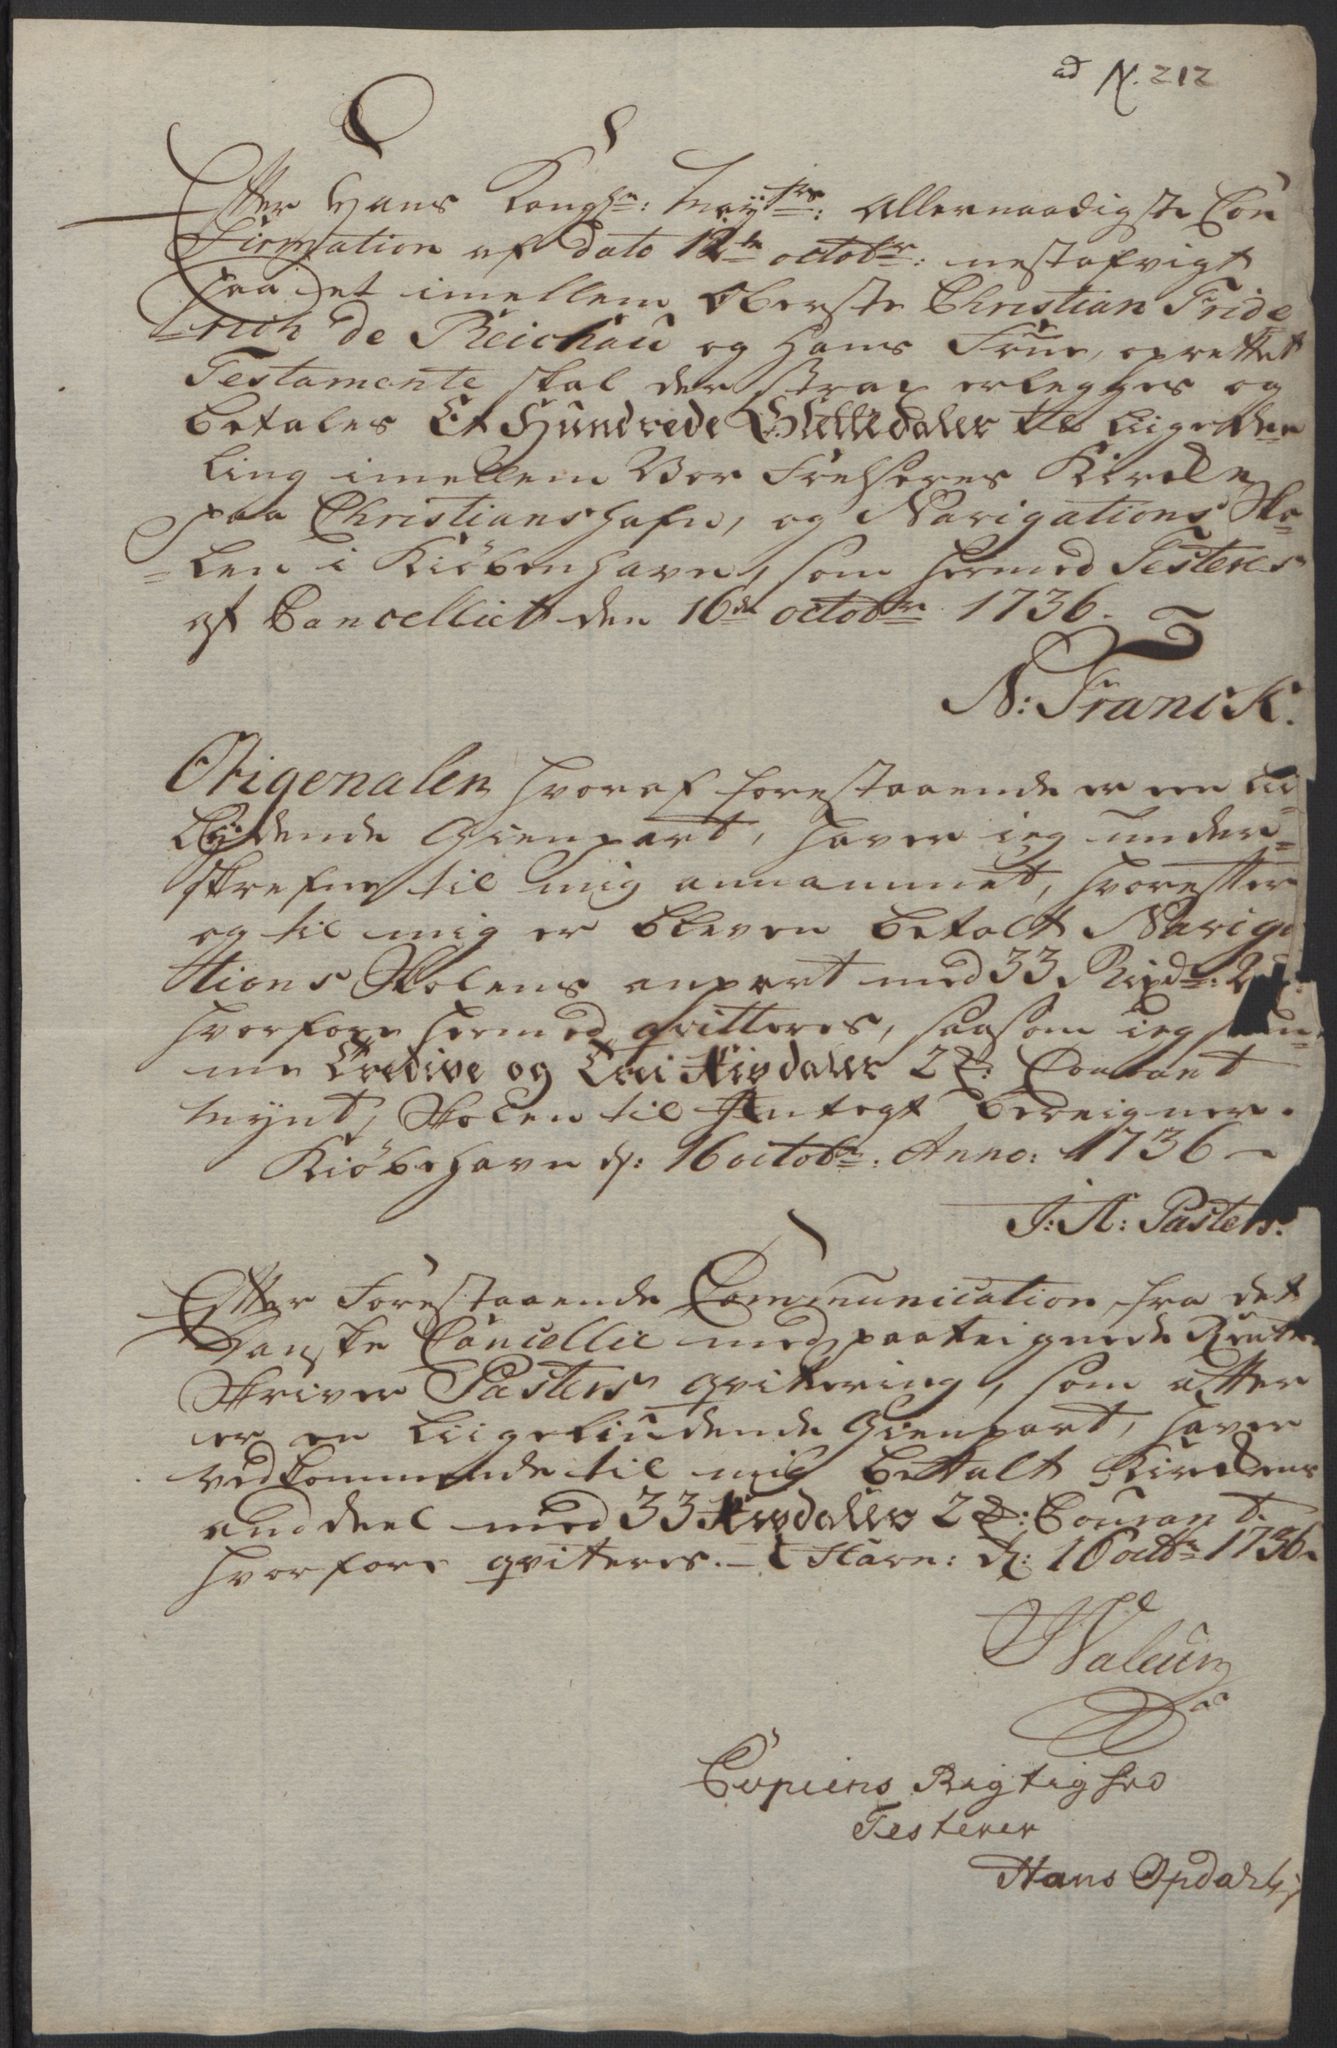 ad N. 212
Efter Hans Kongl: Mayts: Allernaadigste Con
firmation af dato 12te octobr: nestafvigt
paa det imellem Oberste Christian Fride
=rich de Reichau og hans Frue, oprettet
Testamente skal der strax erlegges og
betales Et Hundrede Slettedaler til Liige deel
ling imellem Vor Frelseres Kircke
paa Christianshafn, og Navigations Sko=
=len i Kiöbenhavn, som hermed Testeres
af Cancelliet den 16de octobr 1736.
N: Franck.
Origenalen hvoraf forestaaende er een Lii
lydende Gienpart, haver ieg under=
skrefne til mig annammet, hvorefter
og til mig er bleven betalt Naviga
tions Skolens anpart med 33 Rixdr:
hvorfore hermed qvitteres, saasom ieg
me Tredive og Trei Rixdaler 2 : Courant
Mynt, Skolen til Indtegt bereigner.
Kiöbehavn d: 16 octobr: Anno: 1736
J: A: Pasters.
Efter Forestaaende Communication, fra det
Danske Cancellie med paateignede Rente
Skriver Pasters qvittering, som atter
er en Liigeliudende Gienpart, haver
vedkommende til mig betalt Kirckens
anddeel med 33 Rixdaler 2 : Courant.
hvorfore qviteres. Havn: d: 16 octbr 1736
Waleur
Copiens Rigtighed
Testerer
Hans Opdahl